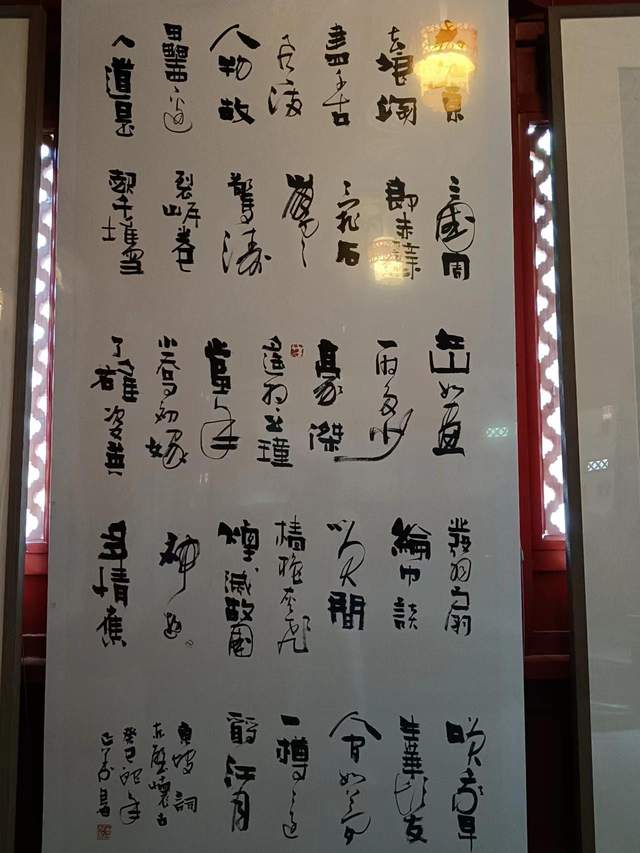 東
去浪淘
盡千古
風流
人物故
壘西邊
人道是
三國周
郎赤壁
石
驚濤
裂岸卷
千堆雪
江山如畫
一时多少
豪傑
遙想公瑾
當年
小喬初嫁
了雄姿英
發羽扇
綸巾談
笑間
樯櫓灰飛
煙滅故國
神遊
多情應
笑我早
生華髮
人间如夢
一樽還
酹江月
東坡詞
赤壁懷古
癸巳年